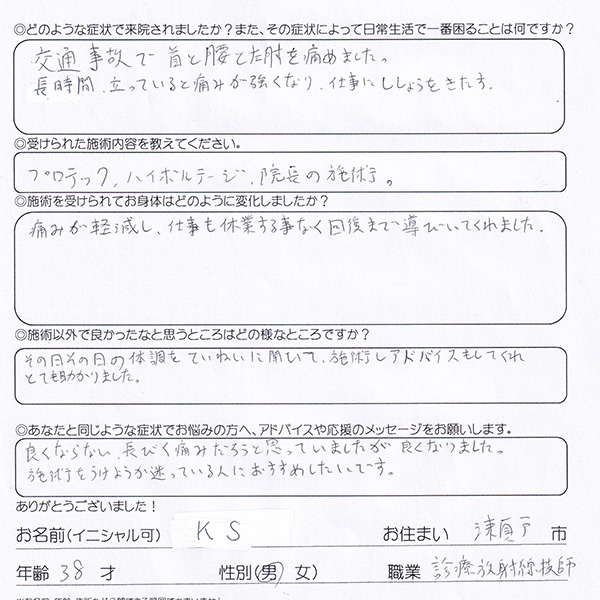 ◎どのような症状で来院されましたか?また、その症状によって日常生活で一番困ることは何ですか?
交通事故で首と腰と左肘を痛めました。
長時間、立っていると痛みが強くなり、仕事にししょうをきたす。
◎受けられた施術内容を教えてください。
プロテック、ハイボルテージ、院長の施術。
◎施術を受けられてお身体はどのように変化しましたか?
痛みが軽減し、仕事も休業する事なく回復まで導びいてくれました。
◎施術以外で良かったなと思うところはどの様なところですか?
その日その日の体調をていねいに聞いて、施術しアドバイスもしてくれ
とても助かりました。
◎あなたと同じような症状でお悩みの方へ、アドバイスや応援のメッセージをお願いします。
良くならない、長びく痛みだろうと思っていましたが良くなりました。
施術をうけようか迷っている人におすすめしたいです。
ありがとうございました!
お名前(イニシャル可) KS お住まい 市
年齢 38 才 性別(男)女) 職業 診療放射線技師